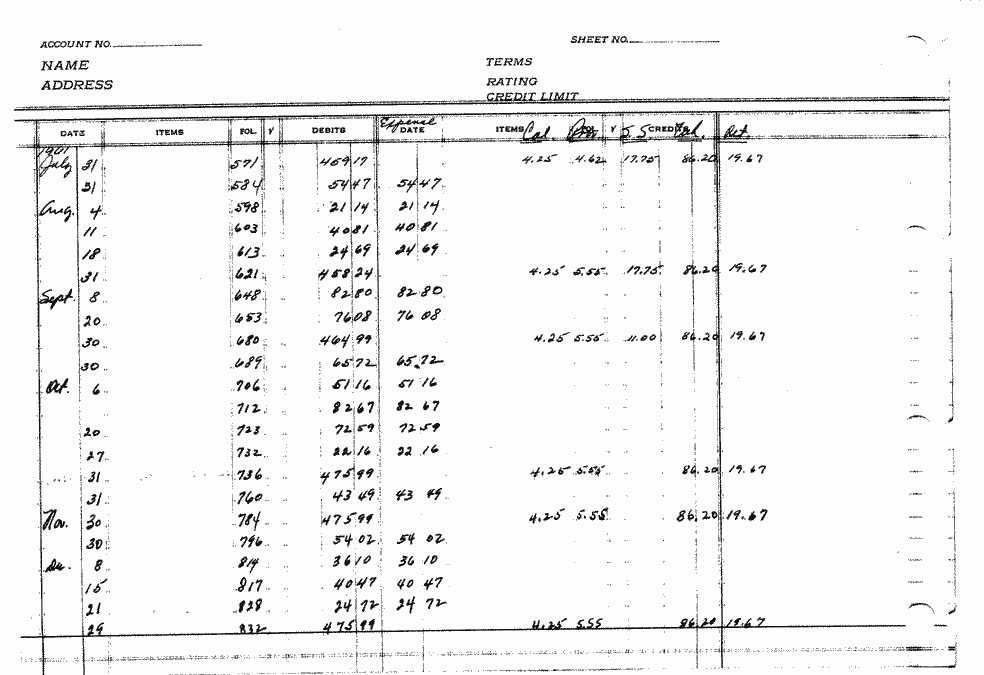 ACCOUNT NO. SHEET NO.
NAME TERMS
ADDRESS RATING
CREDIT LIMIT
DATE ITEMS FOL. √ DEBITS Expense DATE ITEMS Cal √ S.S. CREDITS Ret.
1961
July 31 571 459 17 4.25 4.62 17.75 86.20 19.67
31 584 54 47 54 47
Aug. 4 598 21 14 21 14
11 603 40 81 40 81
18 613 24 69 24 69
31 621 458 24 4.25 5.55 17.75 86.20 19.67
Sept. 8 648 82 80 82 80
20 653 76 08 76 08
30 680 464 99 4.25 5.55 11.00 86.20 19.67
30 689 65 72 65.72
Oct. 6 706 51 16 51 16
712 82 67 82 67
20 723 72 59 72 59
27 732 22 16 22 16
31 736 475 99 4.25 5.55 86.20 19.67
31 760 43 49 43 49
Nov. 30 784 475 99 4.25 5.55 86.20 19.67
30 796 54 02 54 02
Dec. 8 814 36 10 36 10
15 817 40 47 40 47
21 828 24 72 24 72
29 832 475 99 4.25 5.55 86.20 19.67